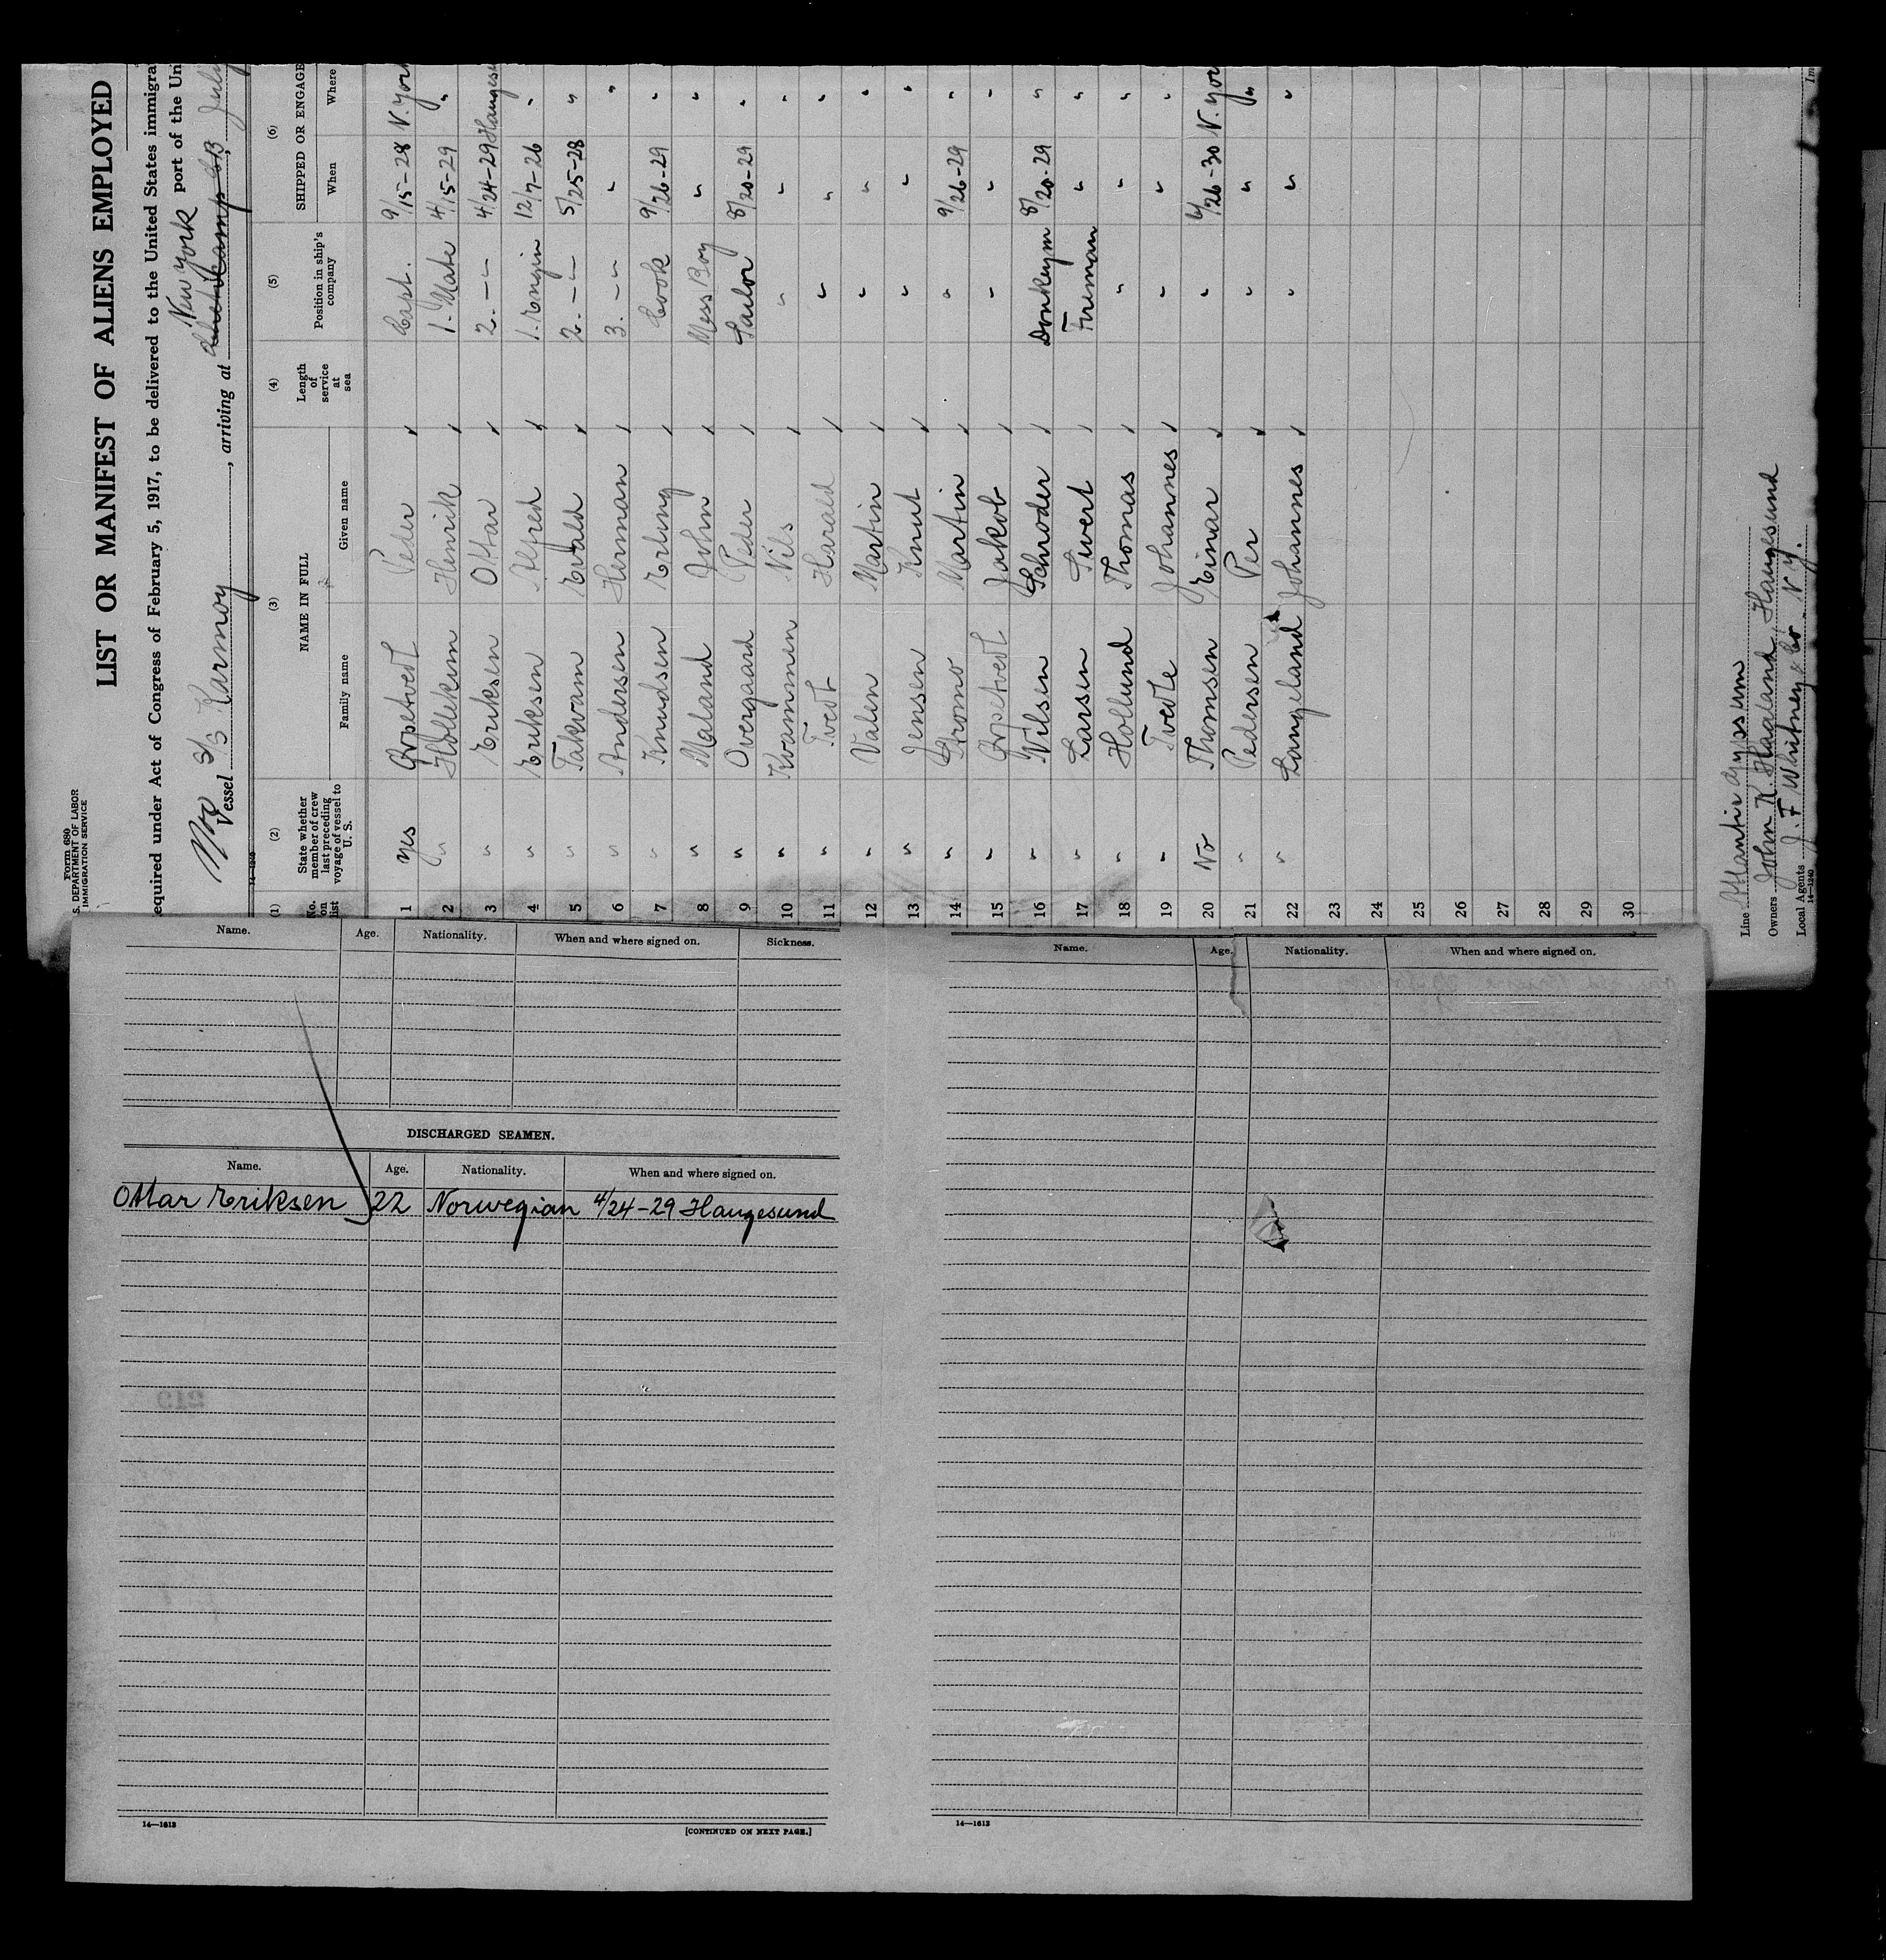 Form 680
S. DEPARTMENT OF LABOR
IMMIGRATION SERVICE
LIST OR MANIFEST OF ALIENS EMPLOYED
equired under Act of Congress of February 5, 1917, to be delivered to the United States immigra
New York port of the Un
Vessel S/S Karmoy, arriving at July
14—1240
(1) (2) (3) (4) (5) (6)
No. on list
State whether member of crew last preceding voyage of vessel to U. S.
NAME IN FULL
Family name Given name
Length of service at sea
Position in ship's company
SHIPPED OR ENGAGE
When Where
1 Yes Gopetvedt Peder Capt. 9/15-28 N. York
2 " Hollekim Henrik 1. Mate 4/15-29 "
3 " Eriksen Ottar 2. – – 4/24-29 Haugesu
4 " Eriksen Alfred 1. Engin 12/7-26 "
5 " Takvam Evald 2. – – 5/25-28 "
6 " Andersen Herman 3. – – " "
7 " Knudsen Erling Cook 9/26-29 "
8 " Maland John Mess Boy " "
9 " Overgaard Peder Sailor 8/20-29 "
10 " Kvammen Nils " " "
11 " Tvedt Harald " " "
12 " Valen Martin " " "
13 " Jensen Knut " " "
14 " Stromo Martin " 9/26-29 "
15 " Gopetvedt Jakob " " "
16 " Nilsen Schroder Donkeym 8/20-29 "
17 " Larsen Sivert Fireman " "
18 " Hollund Thomas " " "
19 " Tvedte Johannes " " "
20 No Thomsen Einar " 6/26-30 N. Yor
21 " Pedersen Per " " "
22 " Langeland Johannes " " "
23
24
25
26
27
28
29
30
Line Atlantic Gypsum
Owners John K. Haaland, Haugesund
Local Agents J. F. Whitney & Co. N.Y.
14—1240
Im
Name. Age. Nationality. When and where signed on. Sickness.
DISCHARGED SEAMEN.
Name. Age. Nationality. When and where signed on.
Ottar Eriksen 22 Norwegian 4/24-29 Haugesund
14—1613
[CONTINUED ON NEXT PAGE.]
Name. Age. Nationality. When and where signed on.
14—1613